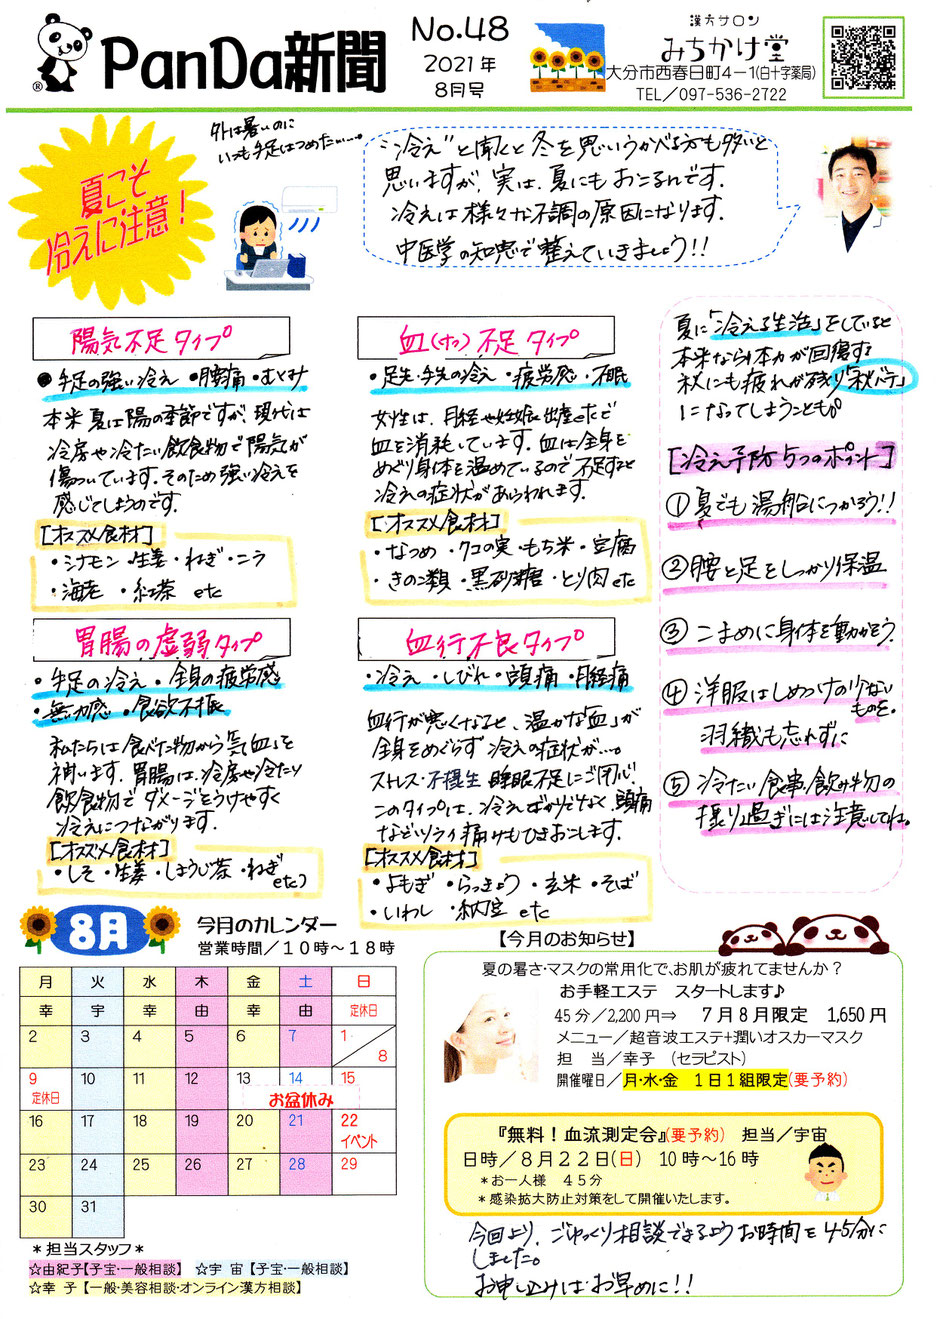 PanDa新聞
®
No.48
2021年
8月号
漢方サロン
みちかけ堂
大分市西春日町4-1(白十字薬局)
TEL/097-536-2722
夏こそ
冷えに注意!
外は暑いのに
いつも手足はつめたい…。
"冷え"と聞くと冬を思いうかべる方も多いと
思いますが、実は、夏にもおこるんです。
冷えは様々な不調の原因になります。
中医学の知恵で整えていきましょう!!
陽気不足タイプ
・手足の強い冷え ・腰痛・むくみ
本来夏は陽の季節ですが、現代は
冷房や冷たい飲食物で陽気が
傷ついています。そのため強い冷えを
感じてしまうのです。
[オススメ食材]
・シナモン・生姜・ねぎ・ニラ
・海老 ・紅茶 etc
血(けつ)不足タイプ
・足先・手先の冷え ・疲労感 ・不眠
女性は、月経や妊娠、出産などで
血を消耗しています。血は全身を
めぐり身体を温めているので不足すると
冷えの症状があらわれます。
[オススメ食材]
・なつめ ・クコの実・もち米・豆腐
・きのこ類 ・黒砂糖 ・とり肉 etc
胃腸の虚弱タイプ
・手足の冷え・全身の疲労感
・無力感 ・食欲不振
私たちは食べた物から「気・血」を
補います。胃腸は、冷房や冷たい
飲食物でダメージをうけやすく
冷えにつながります。
[オススメ食材]
・しそ・生姜・しょうが茶・ねぎ
etc
血行不良タイプ
・冷え ・しびれ・頭痛・月経痛
血行が悪くなると、温かな「血」が
全身をめぐらず冷えの症状が…。
ストレス・不摂生・睡眠不足にご用心。
このタイプは、冷えばかりでなく、頭痛
などツライ痛みもひきおこします。
[オススメ食材]
・よもぎ ・らっきょう ・玄米・そば
・いわし ・納豆 etc
夏に「冷える生活」をしていると
本来なら体力が回復する
秋にも疲れが残り「秋バテ」
になってしまうことも。
[冷え予防5つのポイント]
①夏でも湯船につかろう!!
②腰と足をしっかり保温
③こまめに身体を動かそう。
④洋服はしめつけの少ない
ものを。
羽織も忘れずに
⑤冷たい食事、飲み物の
摂り過ぎには注意してね。
8月
今月のカレンダー
営業時間/10時~18時
月 火 水 木 金 土 日
幸 宇 幸 由 幸 由 定休日
2 3 4 5 6 7 1/8
9 10 11 12 13 14 15
定休日 お盆休み
16 17 18 19 20 21 22
イベント
23 24 25 26 27 28 29
30 31
*担当スタッフ*
☆由紀子【子宝・一般相談】 ☆宇 宙【子宝・一般相談】
☆幸 子【一般・美容相談・オンライン漢方相談】
【今月のお知らせ】
夏の暑さ・マスクの常用化で、お肌が疲れてませんか?
お手軽エステ スタートします♪
45分/2,200円⇒ 7月8月限定 1,650円
メニュー/超音波エステ+潤いオスカーマスク
担 当/幸子 (セラピスト)
開催曜日/月・水・金 1日1組限定(要予約)
『無料!血流測定会』(要予約) 担当/宇宙
日時/8月22日(日) 10時~16時
*お一人様 45分
*感染拡大防止対策をして開催いたします。
今回より、ごゆっくり相談できるようお時間を45分に
しました。
お申し込みはお早めに!!